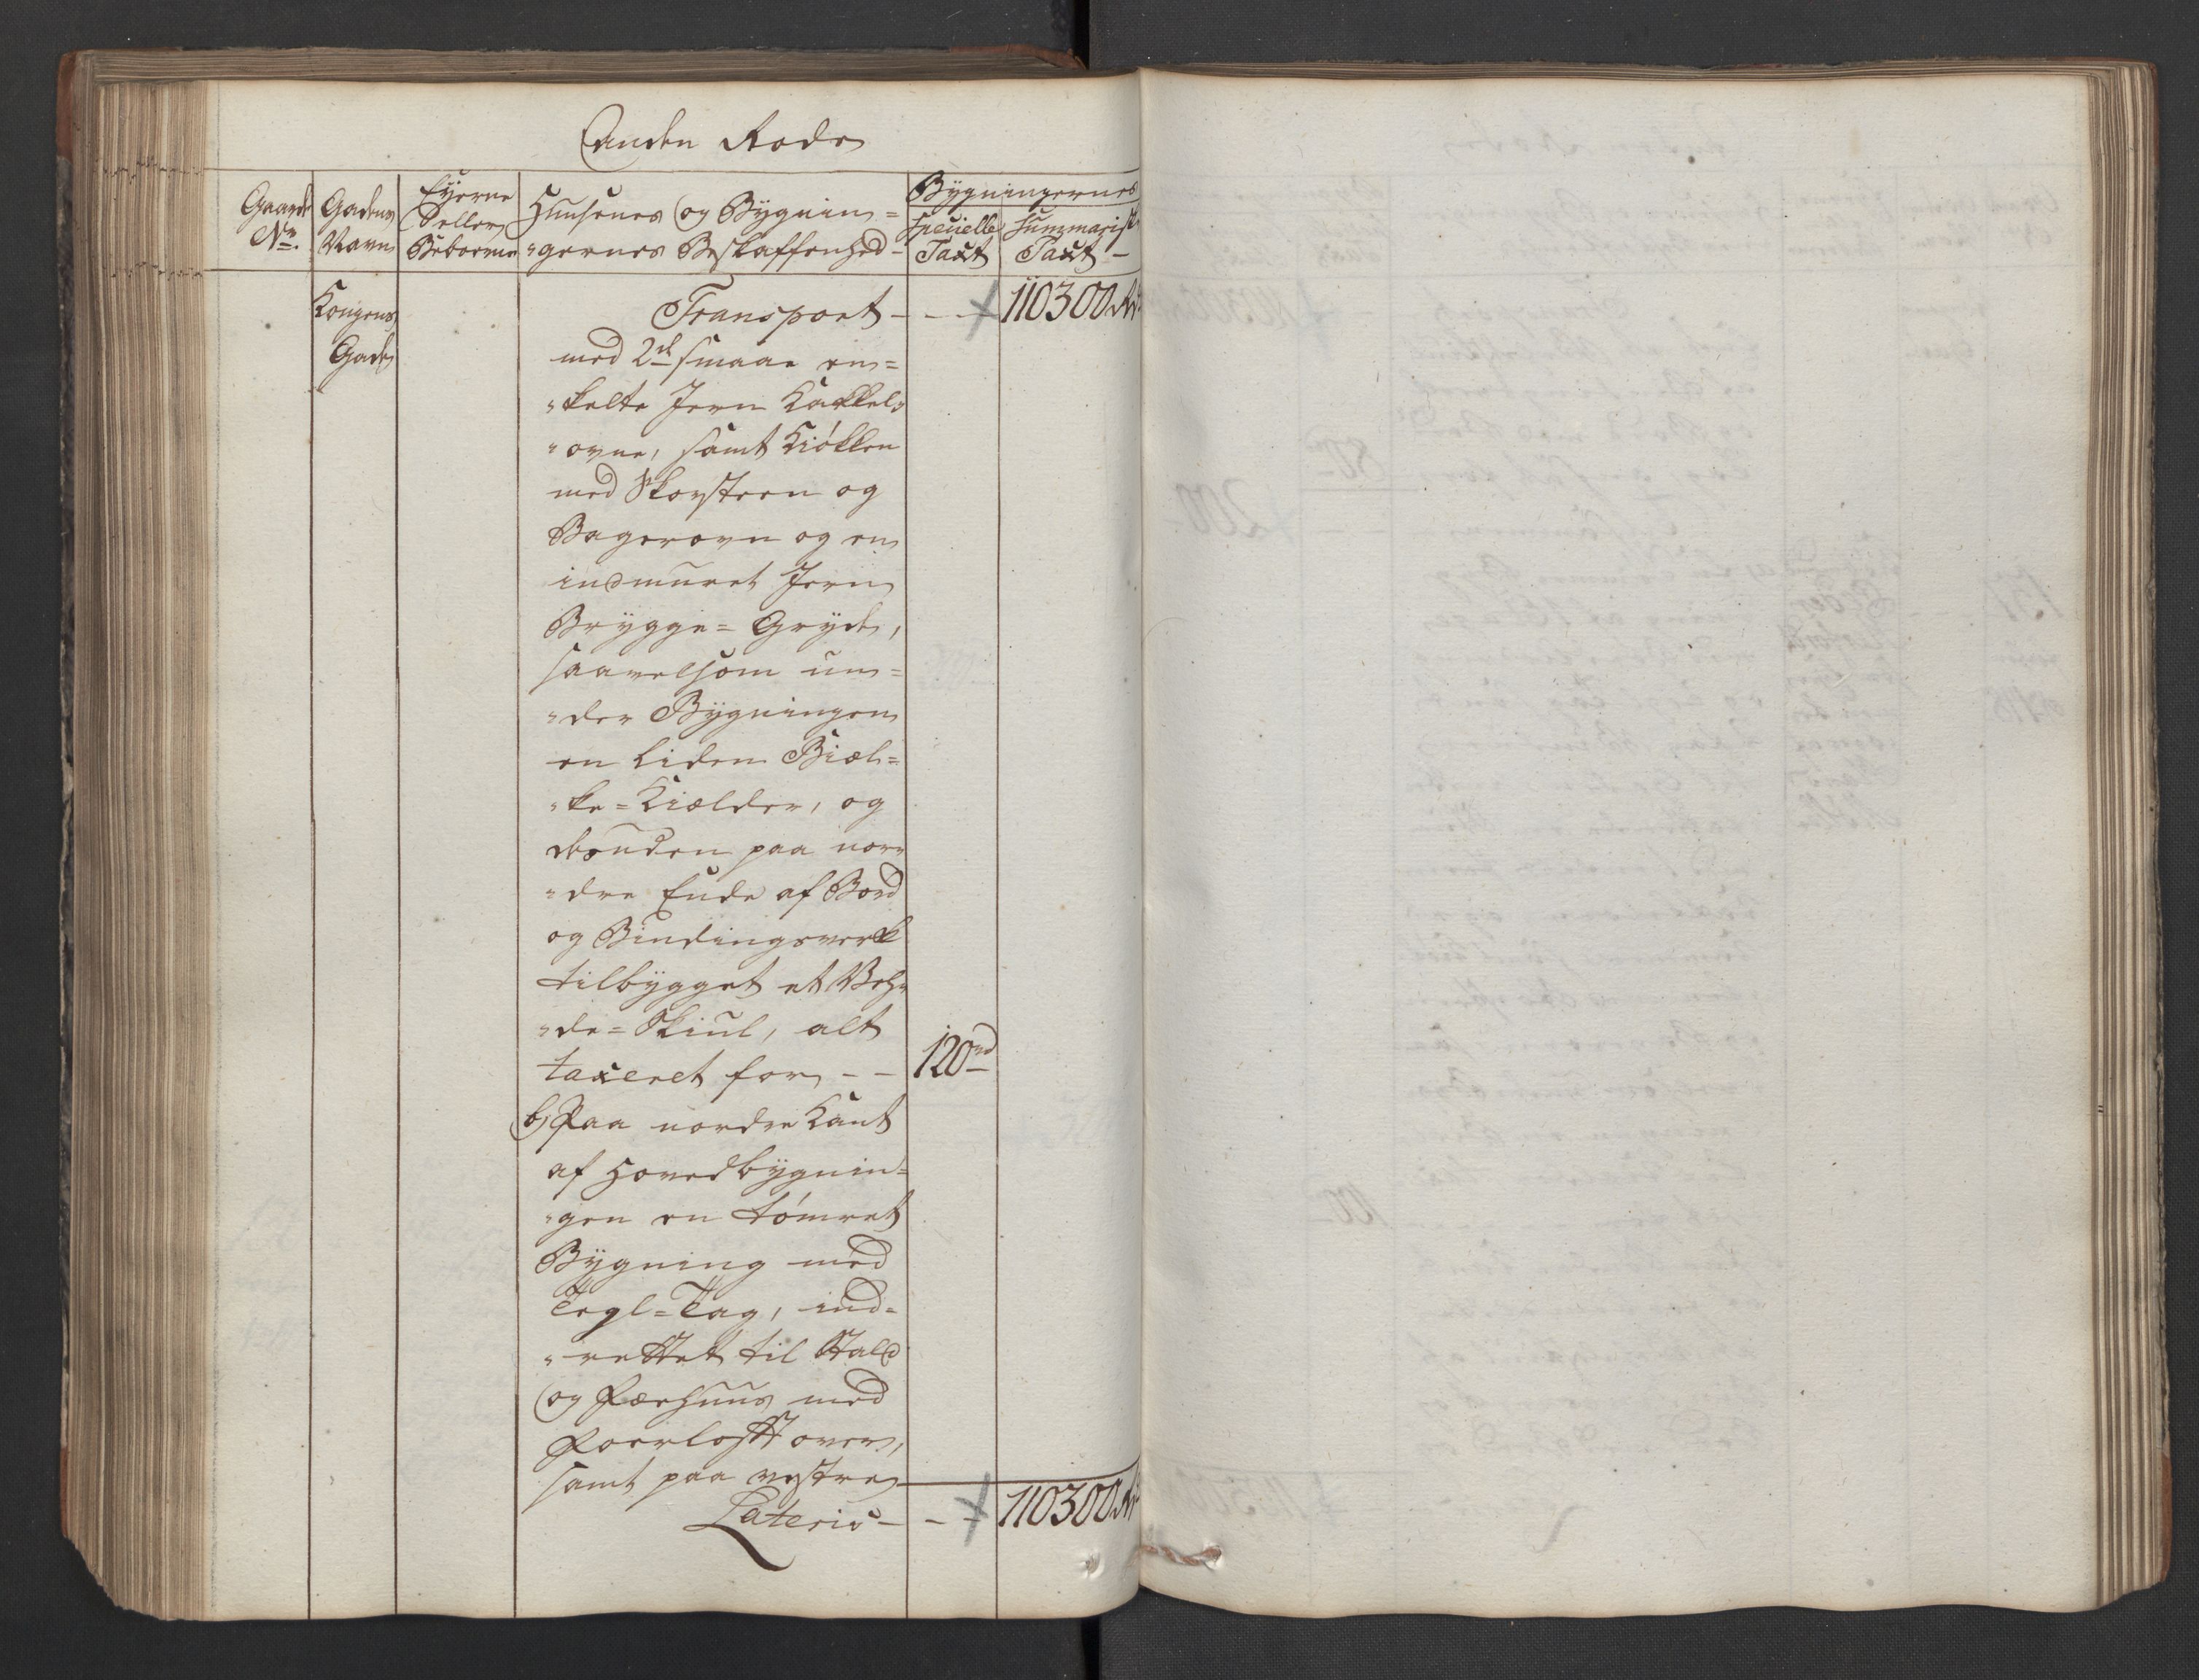 Anden Rode
Gaards No. | Gadens Navn | Eyerne eller Beboerne | Huusenes og Bÿgnin= "gernes Beskaffenhed - | Bÿgningernes
Specielle Taxt | Summarisk Taxt -
Kongens
Gade
Transport - - - 110300 Rd
med 2de smaae en=
"kelte Jern Kakkel"
"ovne, samt Kiökken
med Skorsteen og
Bagerovn og en
indmuret Jern
Brÿgge=Grÿde,
saavelsom un=
"der Bÿgningen
en liden Biæl=
"ke=Kielder, og
desuden paa nor"
"dre Ende af Bord
og Bindingsverk
tilbÿgget et Veh"
"de=Skiul, alt
taxeret for - - 120rd
b) Paa nordre Kant
af Hovedbÿgnin=
"gen en tömret
Bÿgning med
Tegl=Tag, ind=
"rettet til Stald
og Færhuus med
Foerloftt over,
samt paa vestre
Lateris - - - 110300 Rd